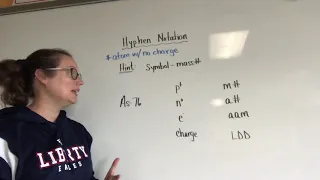 Hyphen Notation
*atom w/ no charge
Hint: Symbol-mass#
p⁺ m#
As-76 n° a.#
e⁻ aam
charge LDD
LIBERTY